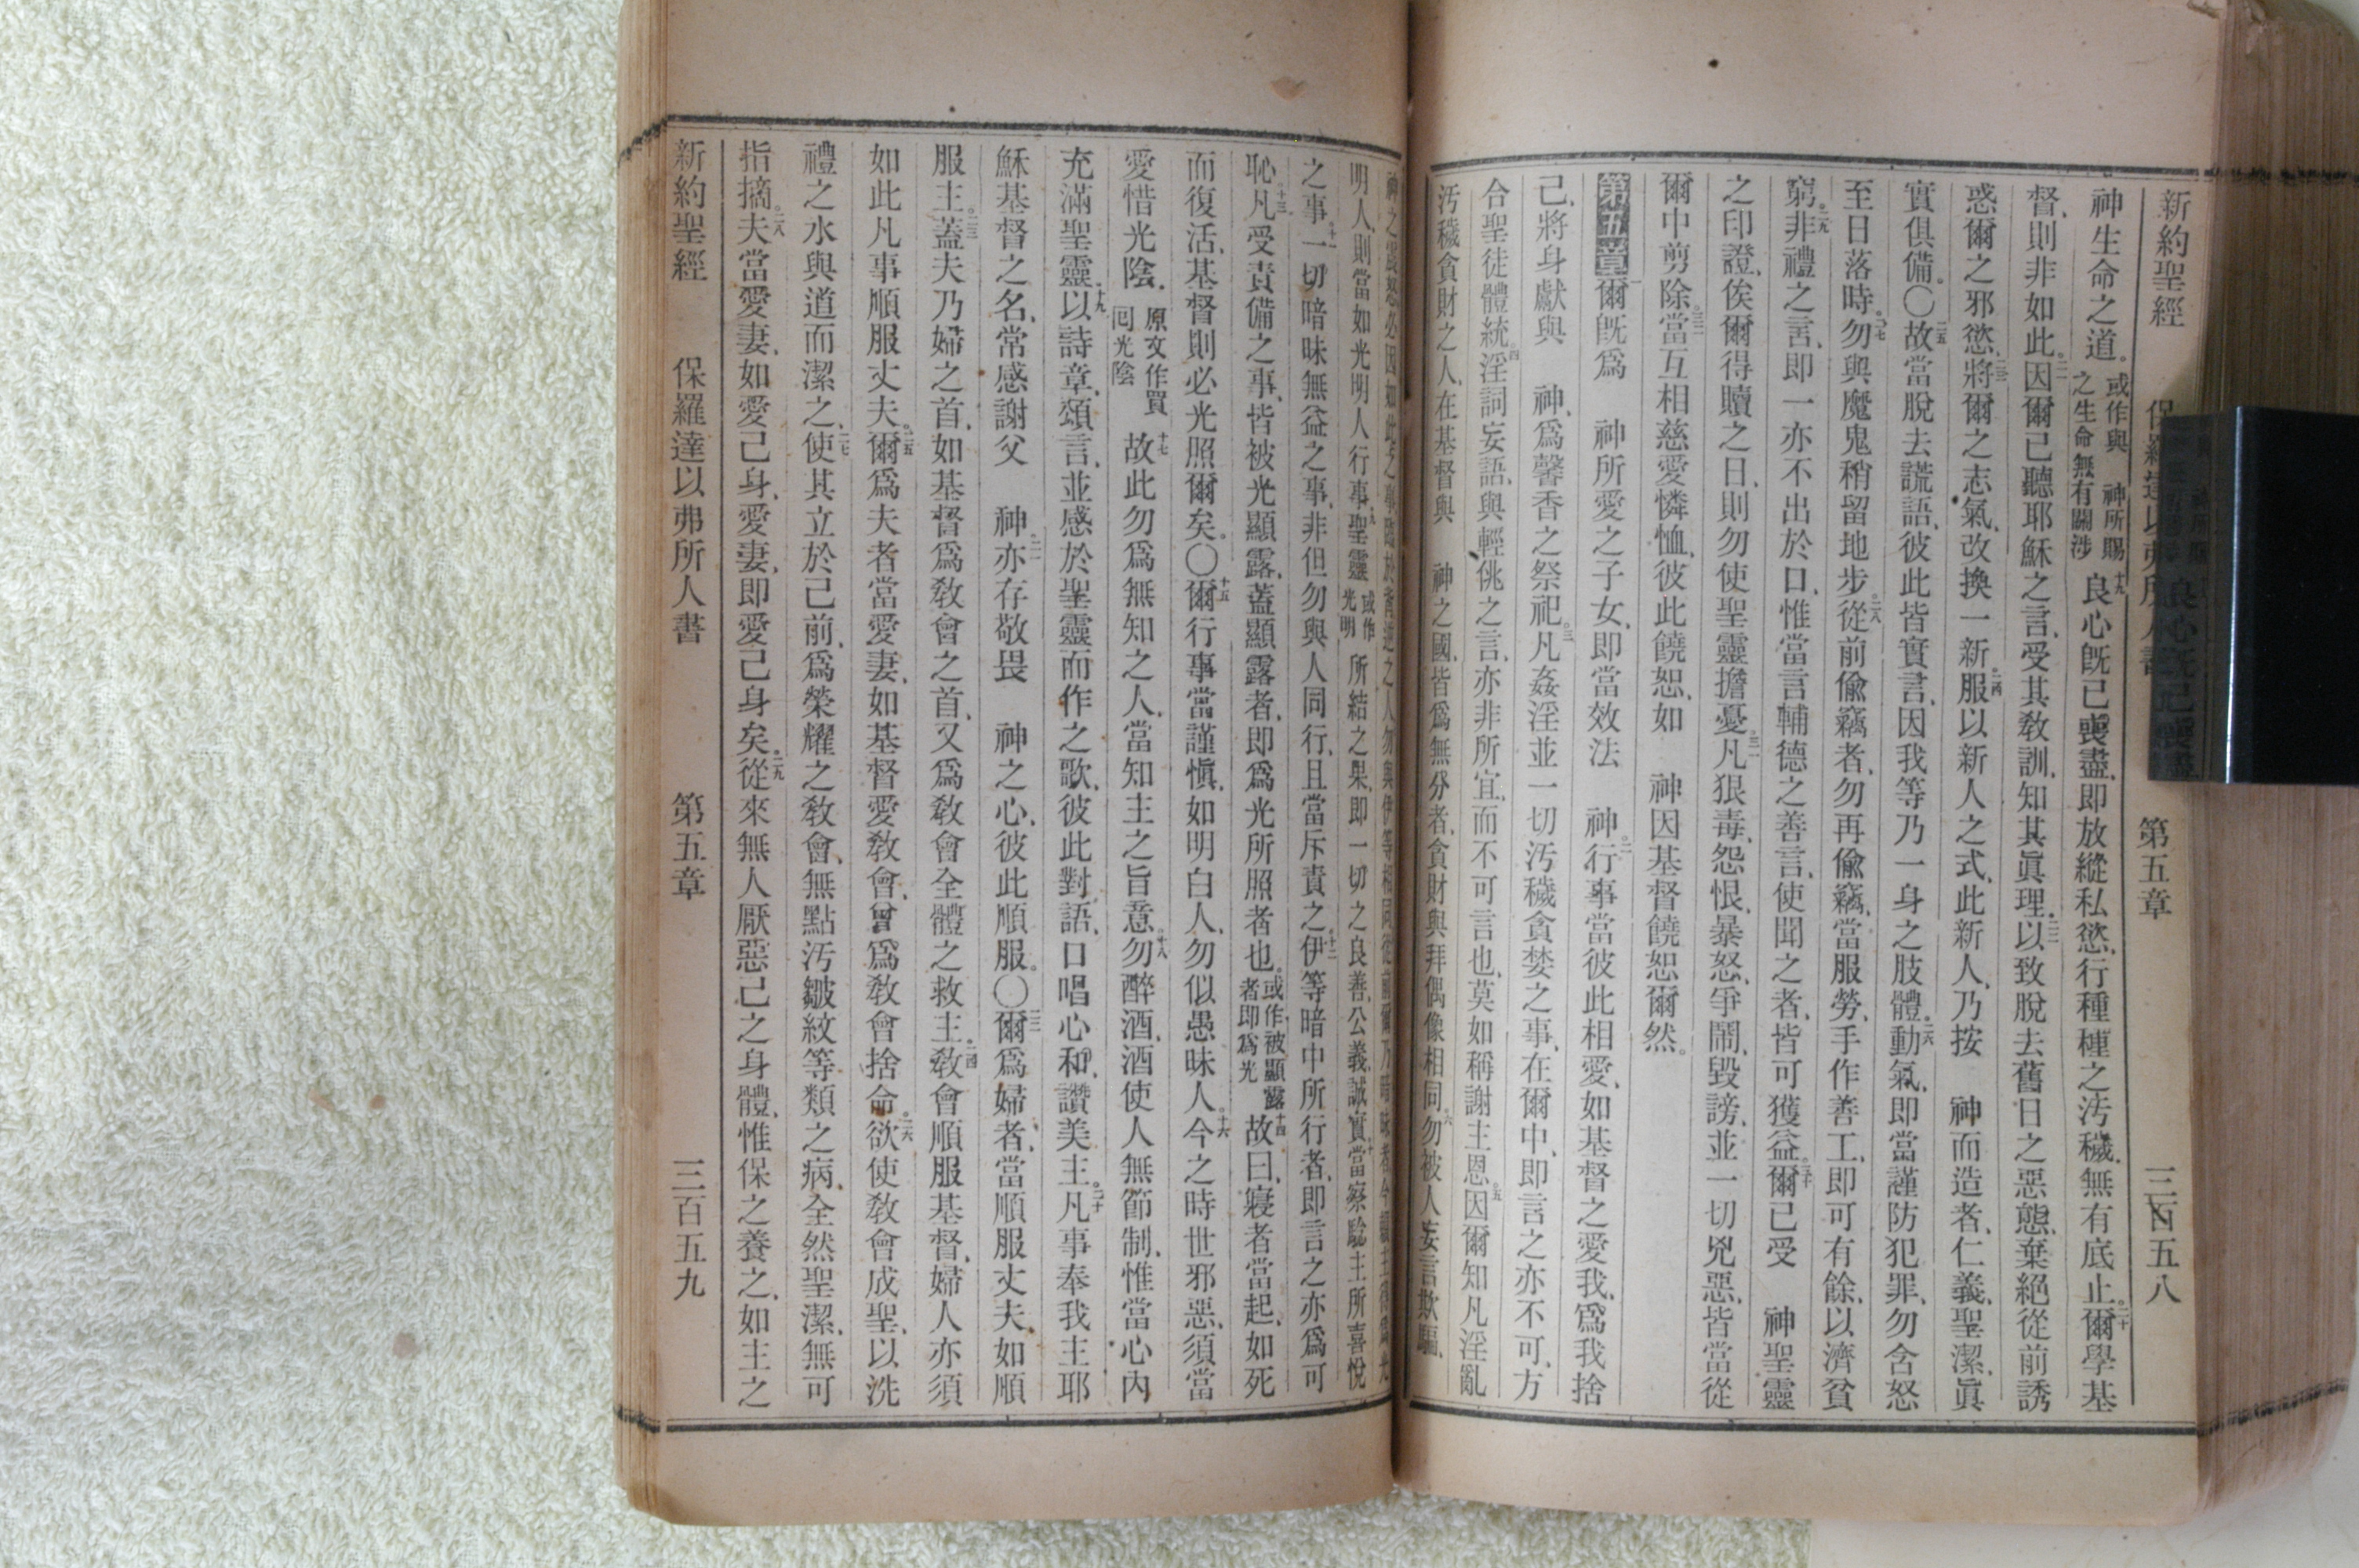 新約聖經 保羅達以弗所人書 第五章 三百五八
神生命之道。或作與 神所賜之生命無有關涉 十九良心旣已喪盡、卽放縱私慾、行種種之汚穢、無有底止。二十爾學基
督、則非如此。二一因爾已聽耶穌之言、受其敎訓、知其眞理、二二以致脫去舊日之惡態、棄絕從前誘
惑爾之邪慾、二三將爾之志氣、改換一新、二四服以新人之式、此新人、乃按 神而造者、仁義聖潔、眞
實俱備。〇二五故當脫去謊語、彼此皆實言、因我等乃一身之肢體、二六動氣、卽當謹防犯罪、勿含怒
至日落時。二七勿與魔鬼稍留地步。二八從前偸竊者、勿再偸竊、當服勞、手作善工、卽可有餘、以濟貧
窮。二九非禮之言、卽一亦不出於口、惟當言輔德之善言、使聞之者、皆可獲益。三十爾已受 神聖靈
之印證、俟爾得贖之日、則勿使聖靈擔憂。三一凡狠毒、怨恨、暴怒、爭鬧、毀謗、並一切兇惡、皆當從
爾中剪除。三二當互相慈愛憐恤、彼此饒恕、如 神因基督饒恕爾然。
第五章 一爾旣爲 神所愛之子女、卽當效法 神。二行事當彼此相愛、如基督之愛我、爲我捨
己、將身獻與 神、爲馨香之祭祀。三凡姦淫並一切汚穢貪婪之事、在爾中、卽言之亦不可、方
合聖徒體統。四淫詞妄語、與輕佻之言、亦非所宜、而不可言也、莫如稱謝主恩。五因爾知凡淫亂
汚穢貪財之人、在基督與 神之國、皆爲無分者、貪財與拜偶像相同。六勿被人妄言欺騙、
神之震怒必因如此之事臨於悖逆之人勿與伊等相同從前爾乃暗昧者今緣主得爲光
明人、則當如光明人行事、九聖靈或作光明所結之果、卽一切之良善、公義、誠實、十當察驗主所喜悅
之事。十一一切暗昧無益之事、非但勿與人同行、且當斥責之。十二伊等暗中所行者、卽言之亦爲可
恥。十三凡受責備之事、皆被光顯露、蓋顯露者、卽爲光所照者也。或作被顯露者卽爲光 十四故曰、寢者當起、如死
而復活、基督則必光照爾矣。〇十五爾行事當謹愼、如明白人、勿似愚昧人。十六今之時世邪惡、須當
愛惜光陰。原文作買囘光陰 十七故此勿爲無知之人、當知主之旨意。十八勿醉酒、酒使人無節制、惟當心內
充滿聖靈、十九以詩章、頌言、並感於聖靈而作之歌、彼此對語、口唱心和、讚美主。二十凡事奉我主耶
穌基督之名、常感謝父 神。二一亦存敬畏 神之心、彼此順服。〇二二爾爲婦者、當順服丈夫、如順
服主。二三蓋夫乃婦之首、如基督爲敎會之首、又爲敎會全體之救主。二四敎會順服基督、婦人亦須
如此凡事順服丈夫。二五爾爲夫者當愛妻、如基督愛敎會、曾爲敎會捨命。二六欲使敎會成聖、以洗
禮之水與道而潔之、二七使其立於己前、爲榮耀之敎會、無點汚皺紋等類之病、全然聖潔、無可
指摘。二八夫當愛妻、如愛己身、愛妻、卽愛己身矣。二九從來無人厭惡己之身體、惟保之養之、如主之
新約聖經 保羅達以弗所人書 第五章 三百五九